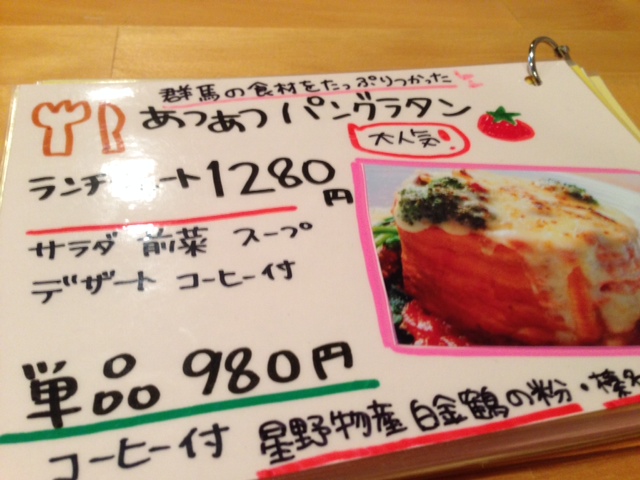 群馬の食材をたっぷりつかった
あつあつパングラタン
大人気!
ランチ ート 1280円
サラダ 前菜 スープ
デザート コーヒー付
単品 980円
コーヒー付
星野物産 白金鶴の粉・榛名